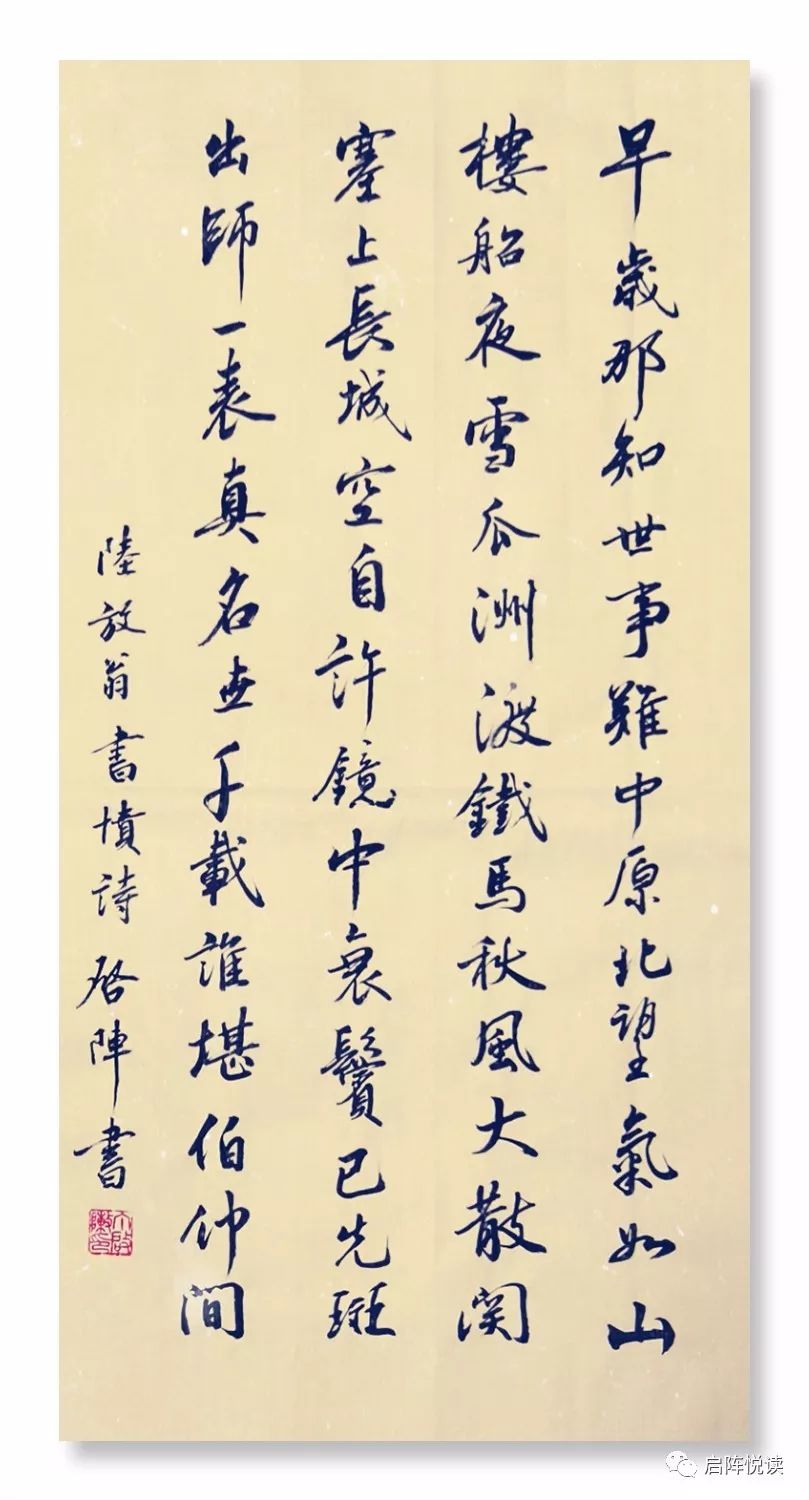 早歲那知世事難中原北望氣如山
樓船夜雪瓜洲渡鐵馬秋風大散関
塞上長城空自許鏡中衰鬢已先斑
出師一表真名世千載誰堪伯仲間
陸放翁書憤詩啓陣書
启阵悦读